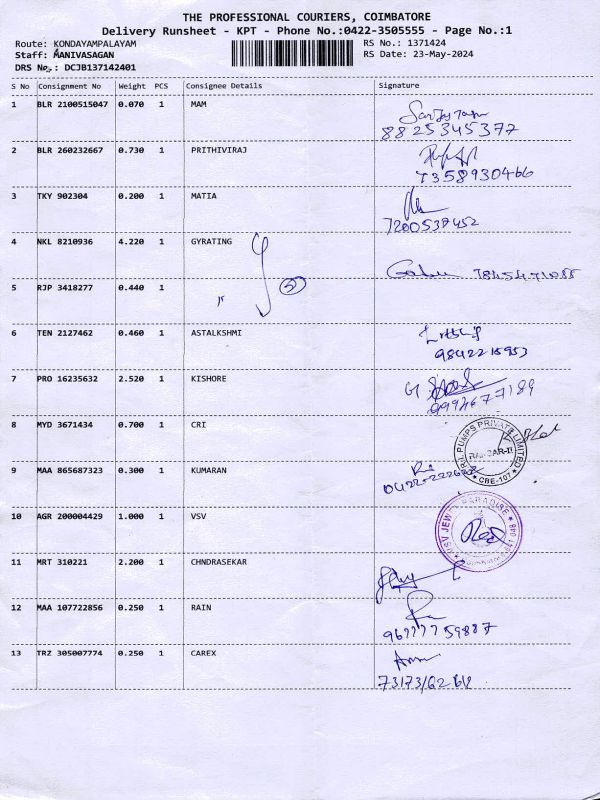 THE PROFESSIONAL COURIERS, COIMBATORE
Delivery Runsheet - KPT - Phone No.:0422-3505555 - Page No.:1
Route: KONDAYAMPALAYAM
RS No.: 1371424
Staff: MANIVASAGAN
RS Date: 23-May-2024
DRS No.: DCJB137142401
S No Consignment No Weight PCS Consignee Details Signature
1 BLR 2100515047 0.070 1 MAM
8825345377
2 BLR 260232667 0.730 1 PRITHIVIRAJ
7358930466
3 TKY 902304 0.200 1 MATIA
7200538452
4 NKL 8210936 4.220 1 GYRATING
5 RJP 3418277 0.440 1
6 TEN 2127462 0.460 1 ASTALKSHMI
9842215953
7 PRO 16235632 2.520 1 KISHORE
8 MYD 3671434 0.700 1 CRI
PUMPS PRIVATE LIMITED
CBE-107
9 MAA 865687323 0.300 1 KUMARAN
10 AGR 200004429 1.000 1 VSV
11 MRT 310221 2.200 1 CHNDRASEKAR
12 MAA 107722856 0.250 1 RAIN
9677759887
13 TRZ 305007774 0.250 1 CAREX